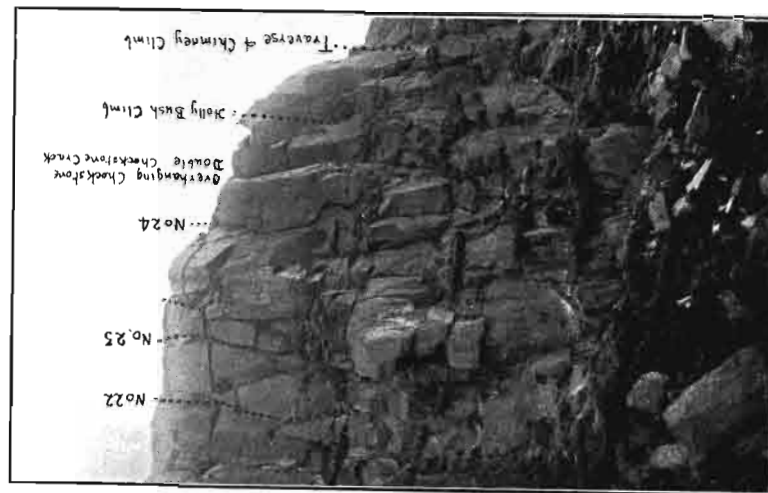 No 22
No. 23
No 24
Overhanging Chockstone
Double Chockstone Crack
Holly Bush Climb
Traverse & Chimney Climb